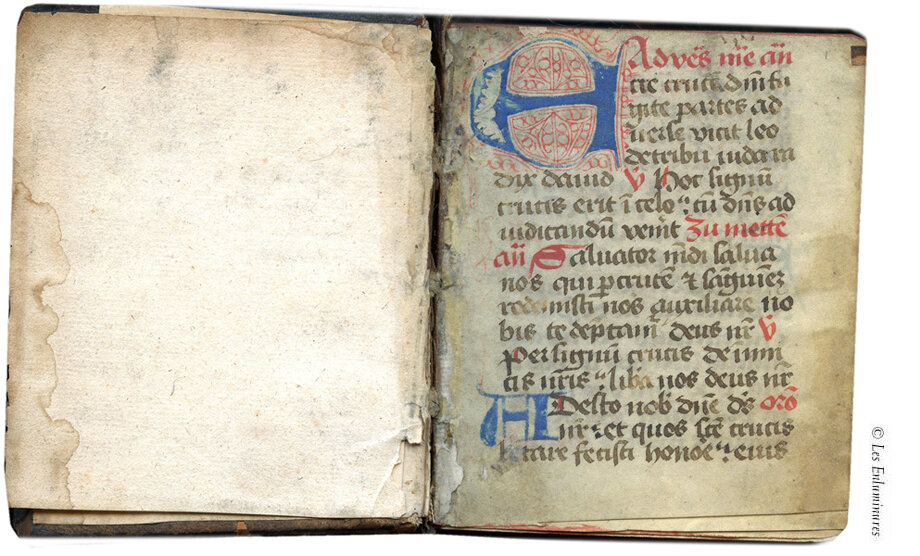 E Ad ves̄ m̄ie an̄
cce crucē dn̄i fu
gite partes ad
uerse vicit leo
de tribu iuda ra
dix dauid v̄ Hoc signū
crucis erit ī celo cū dn̄s ad
iudicandū venīt Zu metten̄
an̄ Saluator mūdi salua
nos qui p crucē et sāguinē
redemisti nos auxiliare no
bis te dep̄cam̄ deus nr̄ v̄
Per signū crucis de inim
icis nr̄is libā nos deus nr̄
Adesto nob̄ dn̄e ds̄ orō
nr̄ et quos scē crucis
letare fecisti honoē eius
© Les Enluminures